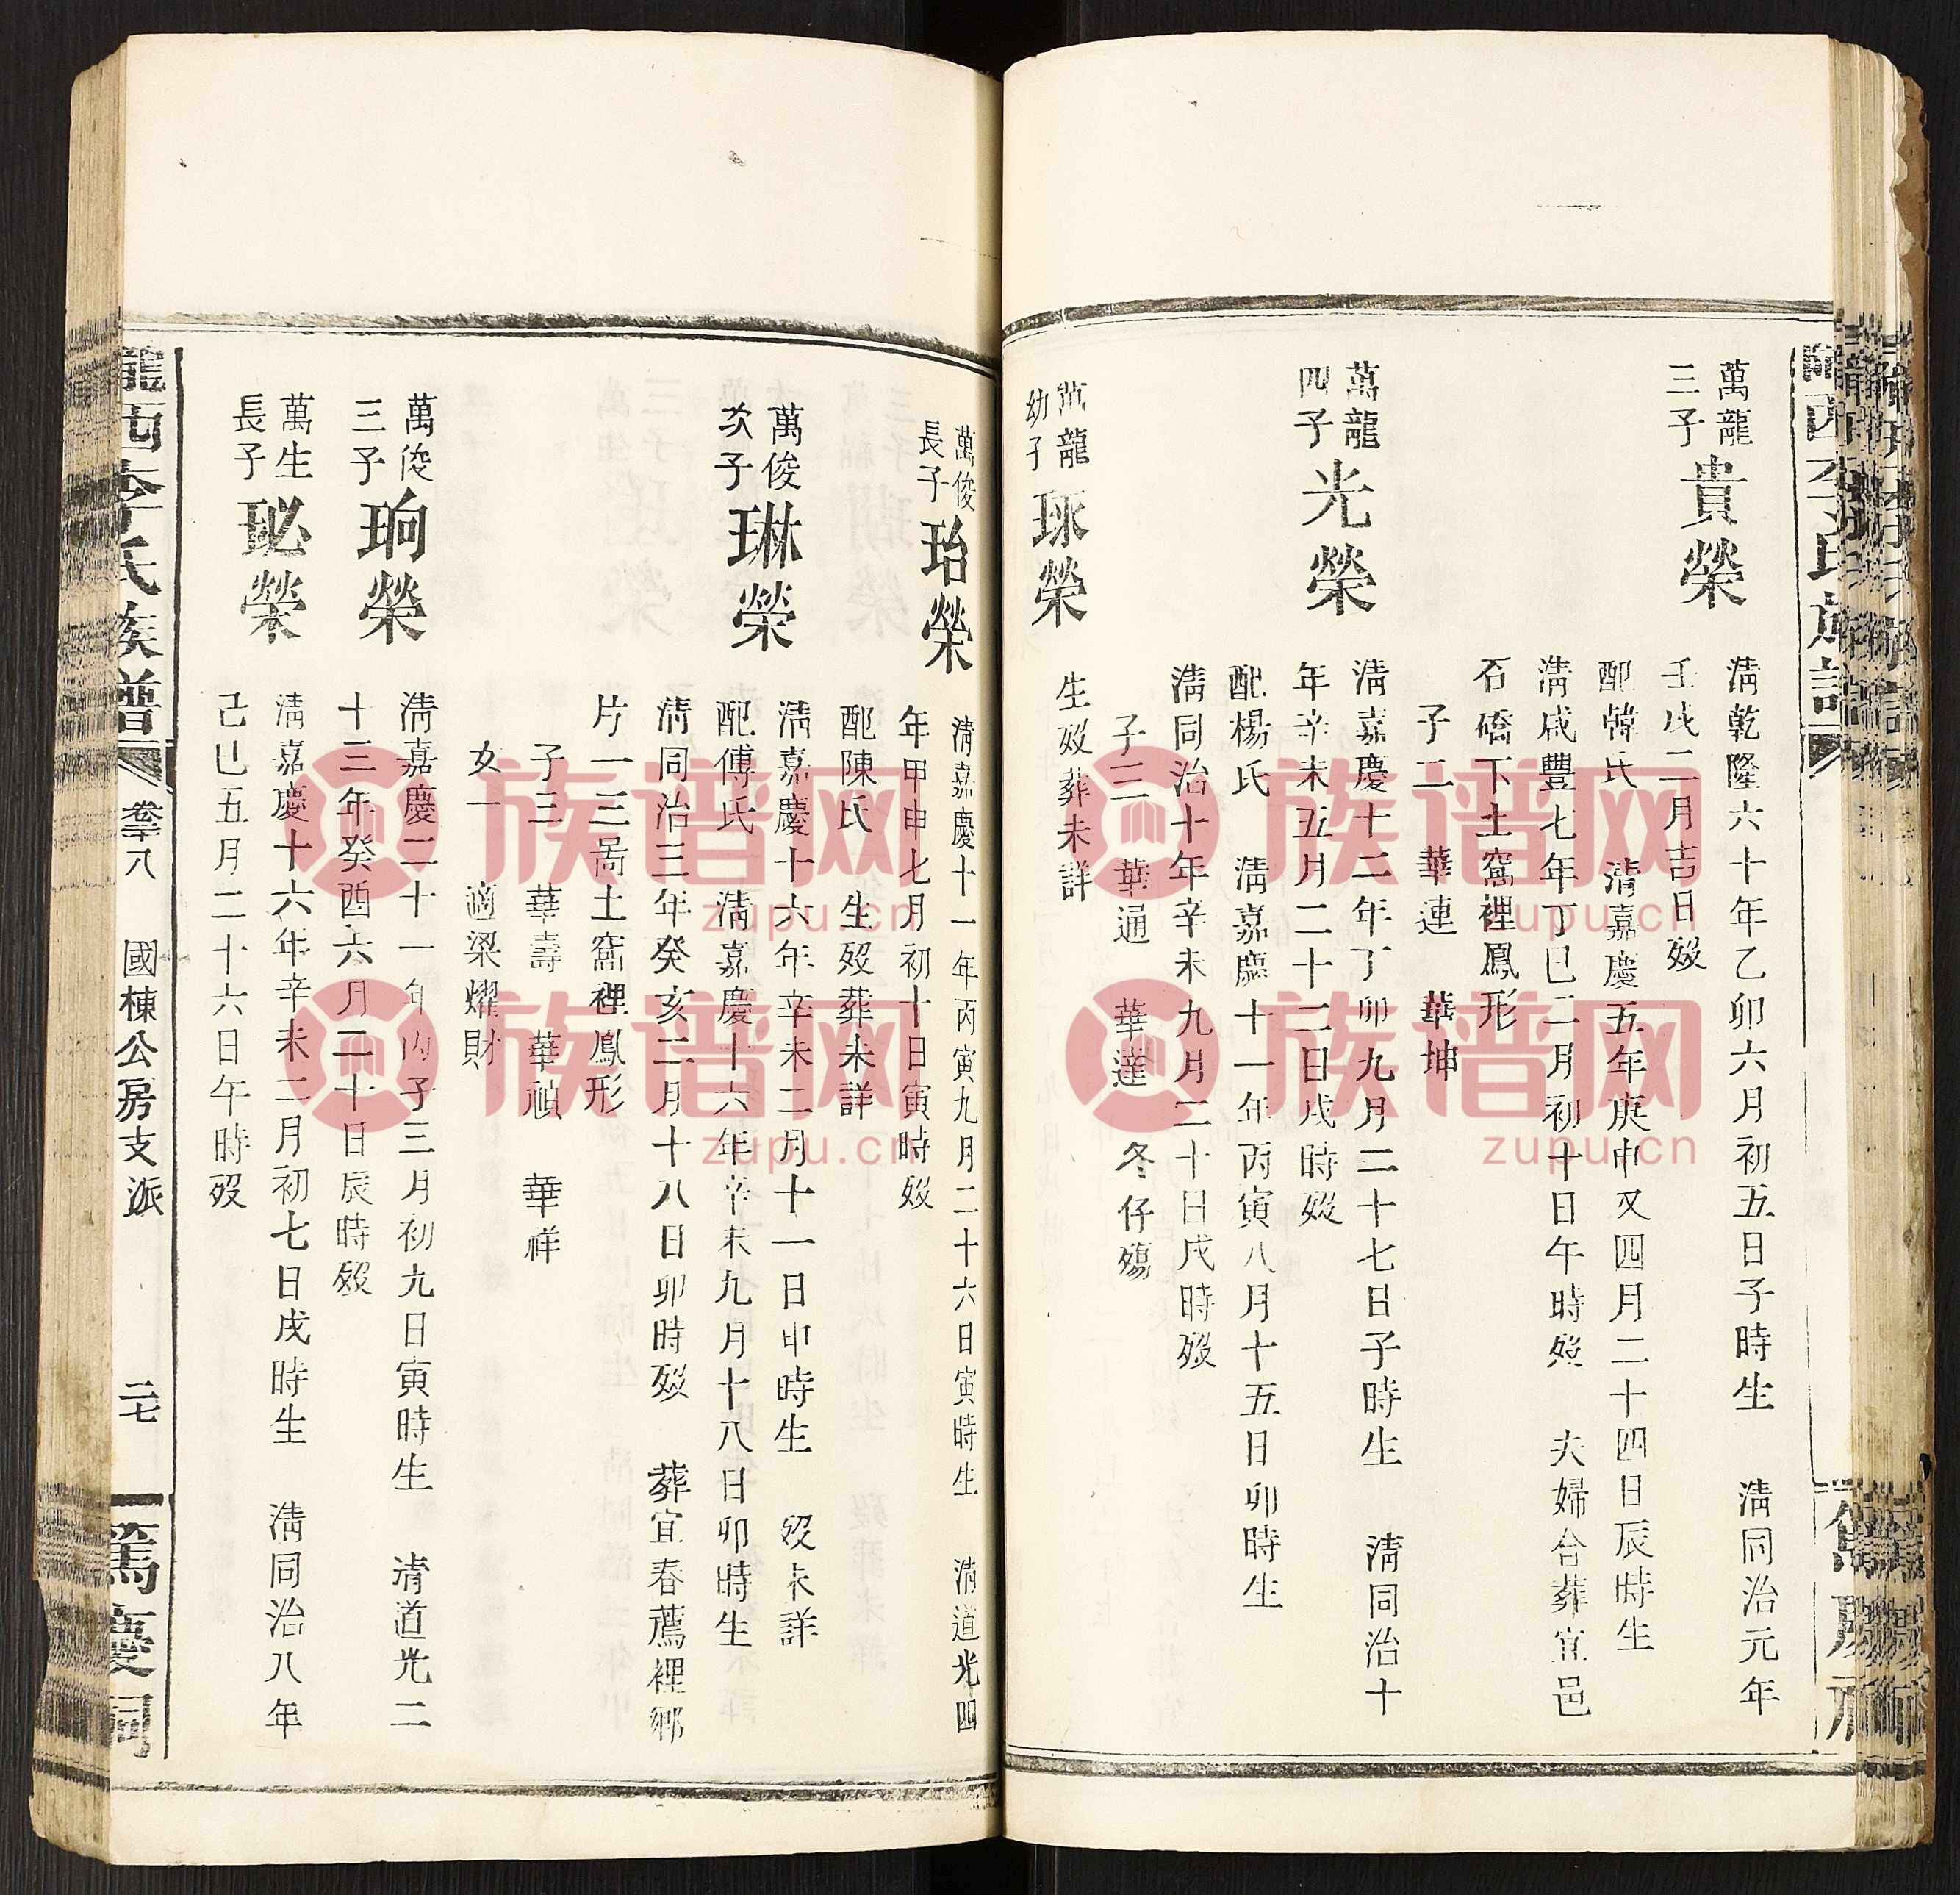 萬龍
三子
貴榮
淸乾隆六十年乙卯六月初五日子時生　淸同治元年
壬戌二月吉日歿
配韓氏　淸嘉慶五年庚申又四月二十四日辰時生
淸咸豐七年丁巳二月初十日午時歿　夫婦合葬宜邑
石磜下土窩裡鳳形
子二　華連　華坤
萬龍
四子
光榮
淸嘉慶十二年丁卯九月二十七日子時生　淸同治十
年辛未五月二十二日戌時歿
配楊氏　淸嘉慶十一年丙寅八月十五日卯時生
淸同治十年辛未九月二十日戌時歿
子三　華通　華達　冬仔殤
萬龍
幼子
琢榮
生歿葬未詳
萬俊
長子
珆榮
淸嘉慶十一年丙寅九月二十六日寅時生　淸道光四
年甲申七月初十日寅時歿
配陳氏　生歿葬未詳
萬俊
次子
琳榮
淸嘉慶十六年辛未二月十一日申時生　歿未詳
配傅氏　淸嘉慶十六年辛未九月十八日卯時生
淸同治三年癸亥二月十八日卯時歿　葬宜春薦裡鄉
片一三啚土窩裡鳳形
子三　華壽　華禎　華祥
女一　適梁燿財
萬俊
三子
珦榮
淸嘉慶二十一年丙子三月初九日寅時生　淸道光二
十三年癸酉六月二十日辰時歿
萬生
長子
珌榮
淸嘉慶十六年辛未二月初七日戌時生　淸同治八年
己巳五月二十六日午時歿
隴西李氏族譜
卷十八　國棟公房支派
二七
篤慶祠
族谱网
zupu.cn
族谱网
zupu.cn
族谱网
zupu.cn
族谱网
zupu.cn